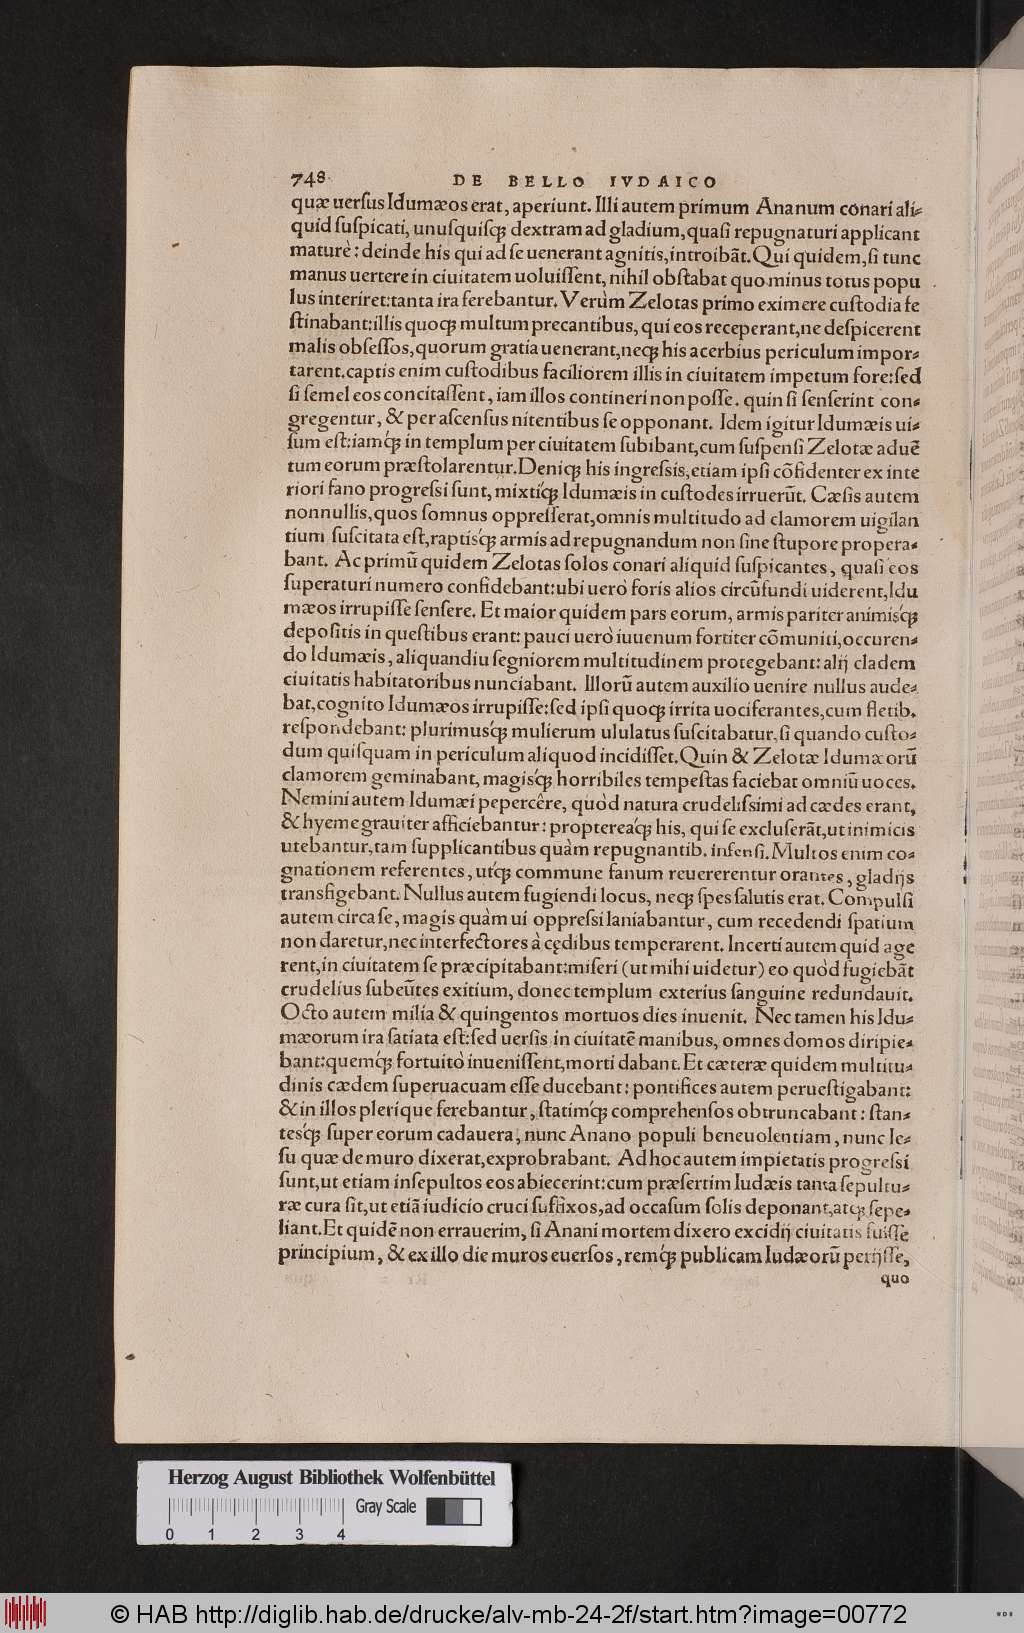 748 DE BELLO IVDAICO
quæ uersus Idumæos erat, aperiunt. Illi autem primum Ananum conari ali⸗
quid suspicati, unusquisq́; dextram ad gladium, quasi repugnaturi applicant
maturè: deinde his qui ad se uenerant agnitis, introibãt. Qui quidem, si tunc
manus uertere in ciuitatem uoluissent, nihil obstabat quo minus totus popu
lus interiret: tanta ira ferebantur. Verùm Zelotas primo eximere custodia fe
stinabant: illis quoq; multum precantibus, qui eos receperant, ne despicerent
malis obsessos, quorum gratia uenerant, neq; his acerbius periculum impor⸗
tarent. captis enim custodibus faciliorem illis in ciuitatem impetum fore: sed
si semel eos concitassent, iam illos contineri non posse. quin si senserint con⸗
gregentur, & per ascensus nitentibus se opponant. Idem igitur Idumæis ui⸗
sum est: iamq́; in templum per ciuitatem subibant, cum suspensi Zelotæ aduẽ
tum eorum præstolarentur. Deniq; his ingressis, etiam ipsi cõfidenter ex inte
riori fano progressi sunt, mixtiq́; Idumæis in custodes irruerũt. Cæsis autem
nonnullis, quos somnus oppresserat, omnis multitudo ad clamorem uigilan
tium suscitata est, raptisq́; armis ad repugnandum non sine stupore propera⸗
bant. Ac primũ quidem Zelotas solos conari aliquid suspicantes, quasi eos
superaturi numero confidebant: ubi uerò foris alios circũfundi uiderent, Idu
mæos irrupisse sensere. Et maior quidem pars eorum, armis pariter animisq́;
depositis in questibus erant: pauci uerò iuuenum fortiter cõmuniti, occuren⸗
do Idumæis, aliquandiu segniorem multitudinem protegebant: alij cladem
ciuitatis habitatoribus nunciabant. Illorũ autem auxilio uenire nullus aude⸗
bat, cognito Idumæos irrupisse: sed ipsi quoq; irrita uociferantes, cum fletib.
respondebant: plurimusq́; mulierum ululatus suscitabatur, si quando custo⸗
dum quisquam in periculum aliquod incidisset. Quin & Zelotæ Idumæorũ
clamorem geminabant, magisq́; horribiles tempestas faciebat omniũ uoces.
Nemini autem Idumæi pepercêre, quòd natura crudelissimi ad cædes erant,
& hyeme grauiter afficiebantur: proptereaq́; his, qui se excluserãt, ut inimicis
utebantur, tam supplicantibus quàm repugnantib. infensi. Multos enim co⸗
gnationem referentes, utq́; commune fanum reuererentur orantes, gladijs
transfigebant. Nullus autem fugiendi locus, neq; spes salutis erat. Compulsi
autem circa se, magis quàm ui oppressi laniabantur, cum recedendi spatium
non daretur, nec interfectores à cędibus temperarent. Incerti autem quid age
rent, in ciuitatem se præcipitabant: miseri (ut mihi uidetur) eo quòd fugiebãt
crudelius subeũtes exitium, donec templum exterius sanguine redundauit.
Octo autem milia & quingentos mortuos dies inuenit. Nec tamen his Idu⸗
mæorum ira satiata est: sed uersis in ciuitatẽ manibus, omnes domos diripie⸗
bant: quemq́; fortuitò inuenissent, morti dabant. Et cæteræ quidem multitu⸗
dinis cædem superuacuam esse ducebant: pontifices autem peruestigabant:
& in illos plerique ferebantur, statimq́; comprehensos obtruncabant: stan⸗
tesq́; super eorum cadauera, nunc Anano populi beneuolentiam, nunc Ie⸗
su quæ de muro dixerat, exprobrabant. Ad hoc autem impietatis progressi
sunt, ut etiam insepultos eos abiecerint: cum præsertim Iudæis tanta sepultu⸗
ræ cura sit, ut etiã iudicio cruci suffixos, ad occasum solis deponant, atq; sepe⸗
liant. Et quidẽ non errauerim, si Anani mortem dixero excidij ciuitatis fuisse
principium, & ex illo die muros euersos, remq́; publicam Iudæorũ perijsse,
quo
Herzog August Bibliothek Wolfenbüttel
Gray Scale
0 1 2 3 4
© HAB http://diglib.hab.de/drucke/alv-mb-24-2f/start.htm?image=00772